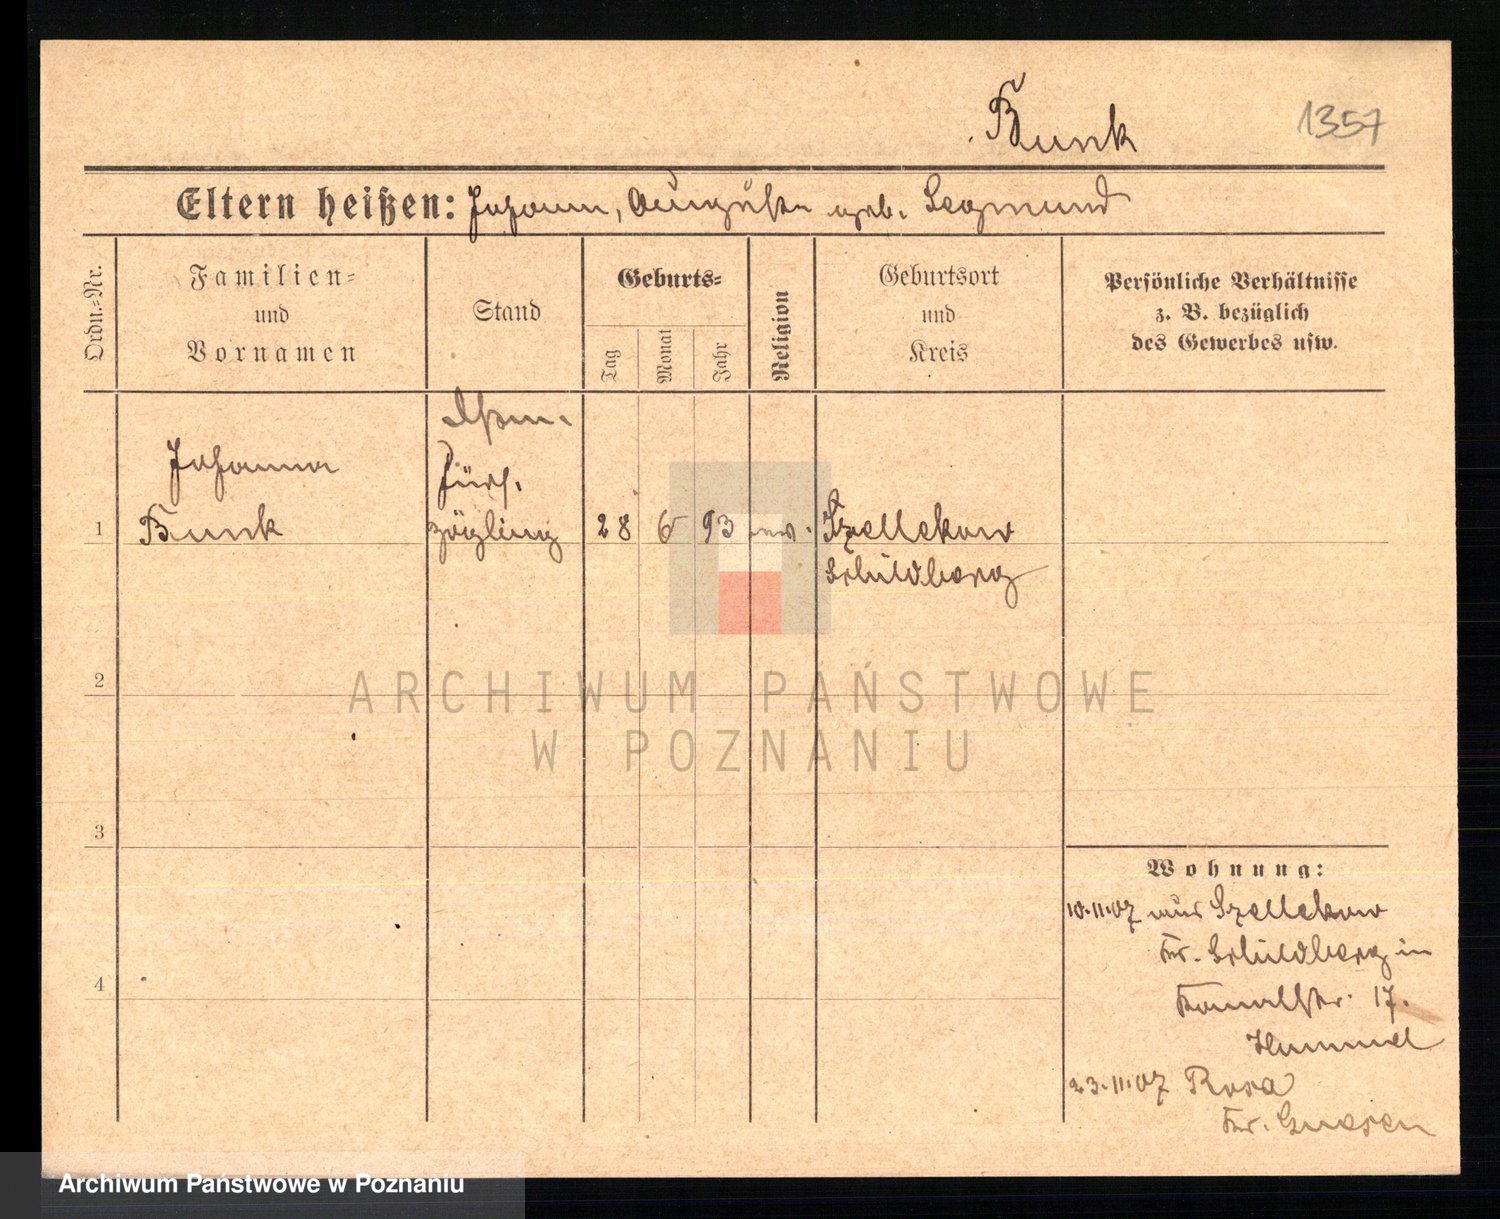 Bunk
1357
Eltern heißen: Johann, Auguste geb. Segmund
Ordn.-Nr.
Familien-
und
Vornamen
Stand
Geburts-
Tag
Monat
Jahr
Religion
Geburtsort
und
Kreis
Persönliche Verhältnisse
z. B. bezüglich
des Gewerbes usw.
Johanna
Fürs.
1 Bunk zögling 28 6 93 ev. Szellekow
Schildberg
2
ARCHIWUM PAŃSTWOWE
W POZNANIU
3
Wohnung:
10.11.07 aus Szellekow
4
Kr. Schildberg in
Kanalstr. 17.
Hummel
23.11.07 Rosa
Kr. Gnesen
Archiwum Państwowe w Poznaniu